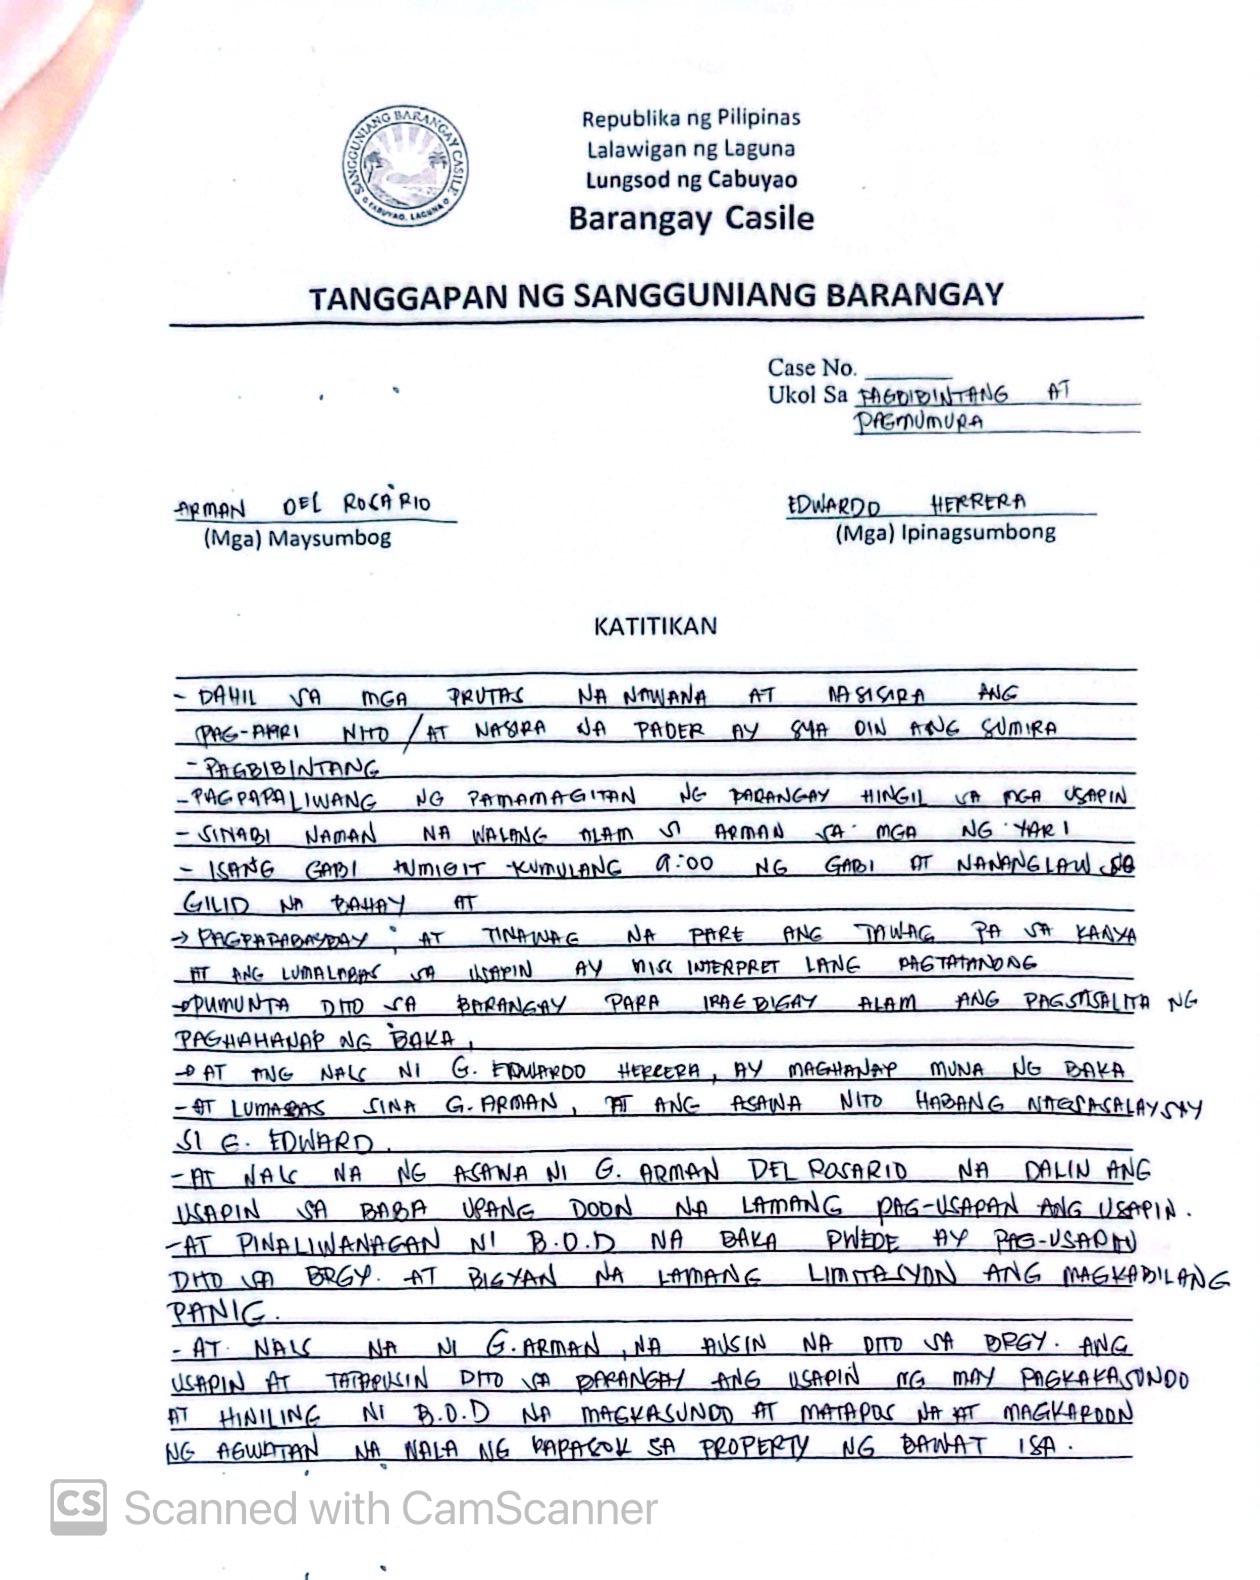 SANGGUNIANG BARANGAY CASILE
CABUYAO, LAGUNA
Republika ng Pilipinas
Lalawigan ng Laguna
Lungsod ng Cabuyao
Barangay Casile
TANGGAPAN NG SANGGUNIANG BARANGAY
Case No.
Ukol Sa PAGBIBINTANG AT
PAGMUMURA
ARMAN DEL ROSARIO
(Mga) Maysumbog
EDWARDO HERRERA
(Mga) Ipinagsumbong
KATITIKAN
- DAHIL SA MGA PRUTAS NA NAWANA AT NASISIRA ANG
PAG-AARI NITO / AT NASIRA NA PADER AY SYA DIN ANG SUMIRA
- PAGBIBINTANG
- PAGPAPALIWANG NG PAMAMAGITAN NG BARANGAY HINGIL SA MGA USAPIN
- SINABI NAMAN NA WALANG ALAM SI ARMAN SA MGA NG YARI
- ISANG GABI HUMIGIT KUMULANG 9:00 NG GABI AT NANANGLAW SA
GILID NA BAHAY AT
→ AT TINAWAG NA PARE ANG TAWAG PA SA KANYA
AT ANG LUMALABAS SA USAPIN AY MISS INTERPRET LANG PAGTATANONG
→ PUMUNTA DITO SA BARANGAY PARA IPAGBIGAY ALAM ANG PAGSASALITA NG
PAGHAHANAP NG BAKA,
→ AT ANG NAIS NI G. EDWARDO HERRERA, AY MAGHANAP MUNA NG BAKA
- AT LUMABAS SINA G. ARMAN, AT ANG ASAWA NITO HABANG NAGSASALAYSAY
SI G. EDWARD.
- AT NAIS NA NG ASAWA NI G. ARMAN DEL ROSARIO NA DALIN ANG
USAPIN SA BABA UPANG DOON NA LAMANG PAG-USAPAN ANG USAPIN.
- AT PINALIWANAGAN NI B.O.D NA BAKA PWEDE AY PAG-USAPAN
DITO SA BRGY. AT BIGYAN NA LAMANG LIMITASYON ANG MAGKABILANG
PANIG.
- AT NAIS NA NI G. ARMAN, NA AUSIN NA DITO SA BRGY. ANG
USAPIN AT TATAPUSIN DITO SA BARANGAY ANG USAPIN NG MAY PAGKAKASUNDO
AT HINILING NI B.O.D NA MAGKASUNDO AT MATAPOS NA AT MAGKAROON
NG AGWATAN NA WALA NG PAPASOK SA PROPERTY NG BAWAT ISA.
CS Scanned with CamScanner